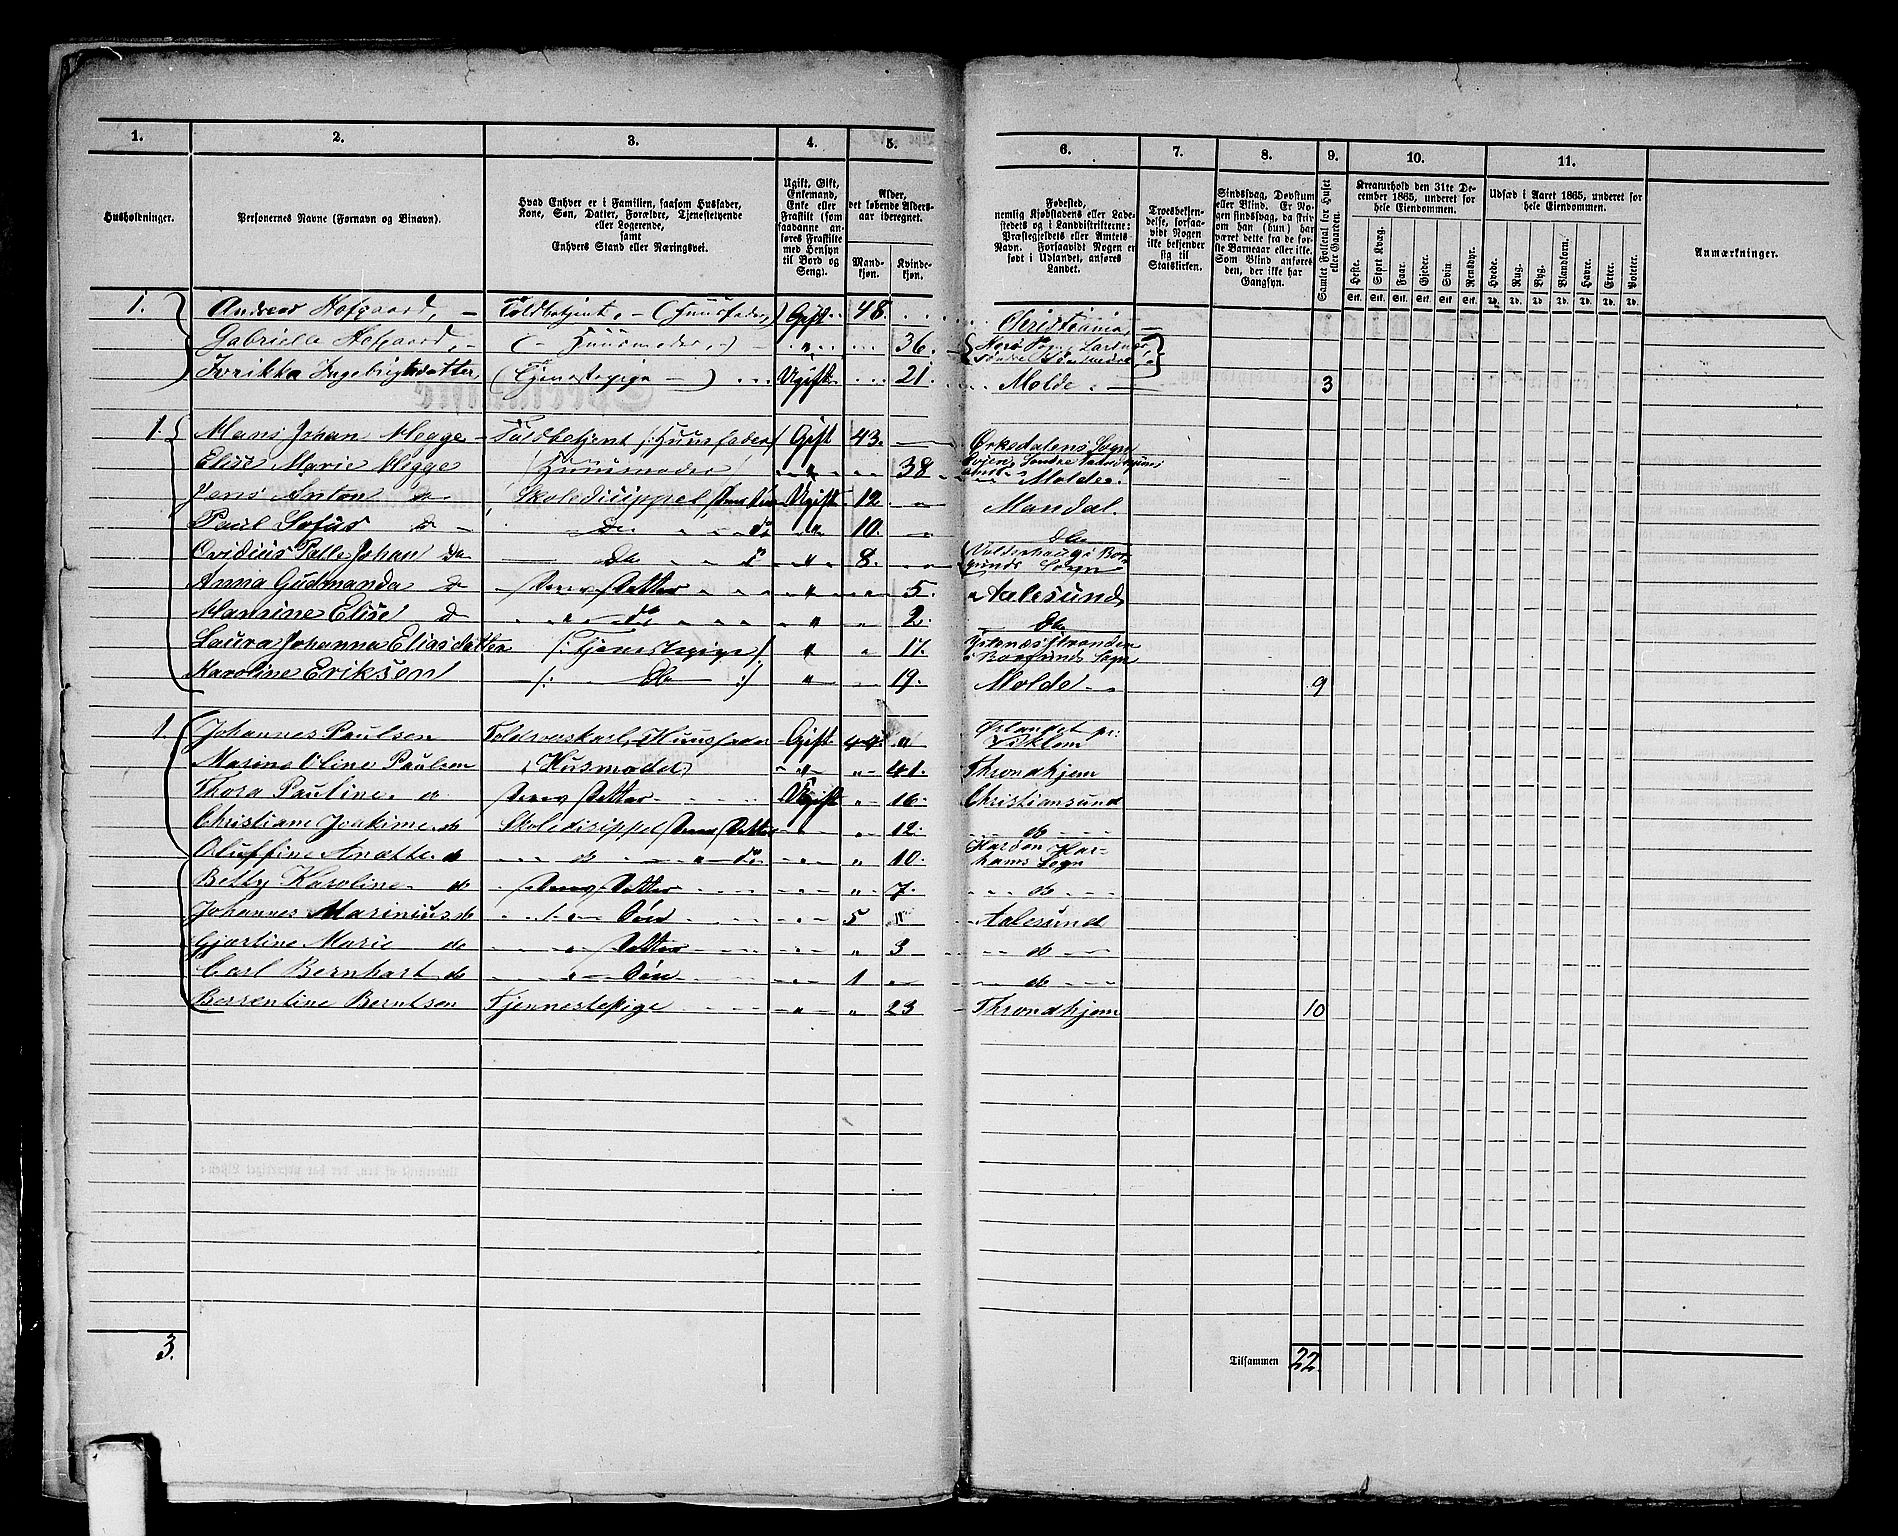 1. 2. 3. 4. 5. 6. 7. 8. 9. 10. 11.
Husholdninger.
Personernes Navne (Fornavn og Binavn).
Hvad Enhver er i Familien, saasom Husfader,
Kone, Søn, Datter, Forældre, Tjenestetyende
eller Logerende,
samt
Enhvers Stand eller Næringsvei.
Ugift, Gift,
Enkemand,
Enke eller
Fraskilt (som
saadanne an-
føres Fraskilte
med Hensyn
til Bord og
Seng).
Alder,
det løbende Alders-
aar iberegnet.
Mand-
kjøn.
Kvinde-
kjøn.
Fødested,
nemlig Kjøbstadens eller Lade-
stedets og i Landdistrikterne:
Præstegjeldets eller Amtets
Navn. Forsaavidt Nogen er
født i Udlandet, anføres
Landet.
Troesbekjen-
delse, forsaa-
vidt Nogen
ikke bekjender
sig til
Statskirken.
Sindssvag, Døvstum
eller Blind. Er No-
gen sindssvag, da skriv
om han (hun) har
været dette fra de før-
ste Barneaar eller ikke.
Som Blind anføres
den, der ikke har
Gangsyn.
Samlet Folketal for Huset
eller Gaarden.
Kreaturhold den 31te De-
cember 1865, underet for
hele Eiendommen.
Heste. Stort Kvæg. Faar. Gjeder. Svin. Rensdyr.
Stk. Stk. Stk. Stk. Stk. Stk.
Udsæd i Aaret 1865, underet for
hele Eiendommen.
Hvede. Rug. Byg. Blandkorn. Havre. Erter. Poteter.
Td. Td. Td. Td. Td. Td. Td.
Anmærkninger.
1. Andreas Hofgaard, Toldbetjent, (Huusfader) Gift 48. Christiania
Gabrielle Hofgaard, (Huusmoder) 36. Sogn
Ingebrigtsdatter (Tjenestepige) Ugift 21. Molde 3
1 Mans Johan Megge Toldbetjent /:Huusfader/ Gift 43. Orkedalens Sogn
Elise Marie Megge /Huusmoder/ 38 Molde
Jens Anton do Skoledisippel, Ugift 12 Mandal
Paul Sofus do Do do 10. Do
Ovidius Palle Johan do Do do 8.
Anna Gudmanda do Datter 5. Aalesund
Mansine Elise do do 2. Do
Laura Johanna Eliasdatter /:Tjenestepige/ 17. Borgunds Sogn
Karoline Eriksen /: Do :/ 19. Molde 9
1 Johannes Paulsen Huusfader Gift 44 Ørlandet
Marine Oline Paulsen (Husmoder) 41. Throndhjem
Thora Pauline do Datter Ugift 16 Christiansund
Christiane Joakime do Skoledisippel Datter 12. do
Oluffine Anætte do do do 10. Harham Sogn
Betty Karoline do Datter 7. do
Johannes Marinius do Søn 5 Aalesund
Gjertine Marie do Datter 3 do
Carl Bernhart do Søn 1 do
Berntsen Tjennestepige 23 Throndhjem 10
3. Tilsammen 22